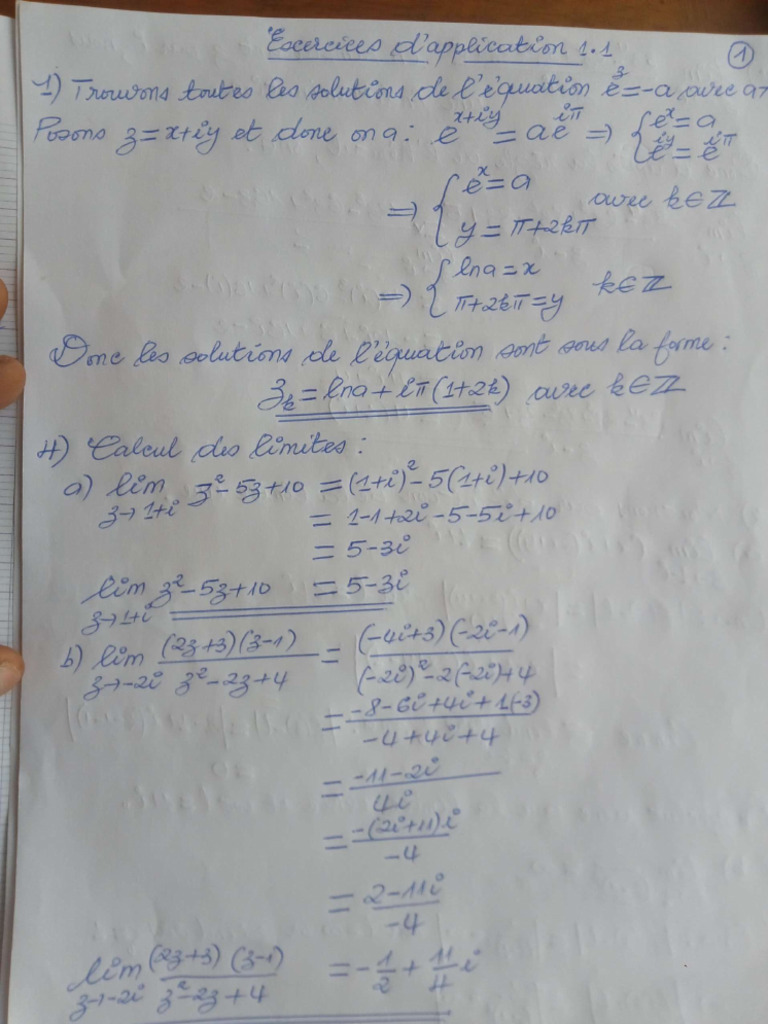 Exercices d'application 1.1
①
1) Trouvons toutes les solutions de l'équation e^z = -a avec a>
Posons z = x+iy et donc on a : e^{x+iy} = a e^{iπ} ⇒ { e^x = a
e^{iy} = e^{iπ}
⇒ { e^x = a
y = π+2kπ avec k∈ℤ
⇒ { ln a = x
π+2kπ = y k∈ℤ
Donc les solutions de l'équation sont sous la forme :
z_k = ln a + iπ(1+2k) avec k∈ℤ
4) Calcul des limites :
a) lim_{z→1+i} z²-5z+10 = (1+i)²-5(1+i)+10
= 1-1+2i-5-5i+10
= 5-3i
lim_{z→1+i} z²-5z+10 = 5-3i
b) lim_{z→-2i} (2z+3)(z-1)/(z²-2z+4) = (-4i+3)(-2i-1)/((-2i)²-2(-2i)+4)
= (-8-6i+4i+1(-3))/(-4+4i+4)
= (-11-2i)/(4i)
= (-(2i+11)i)/(-4)
= (2-11i)/(-4)
lim_{z→-2i} (2z+3)(z-1)/(z²-2z+4) = -1/2 + 11/4 i